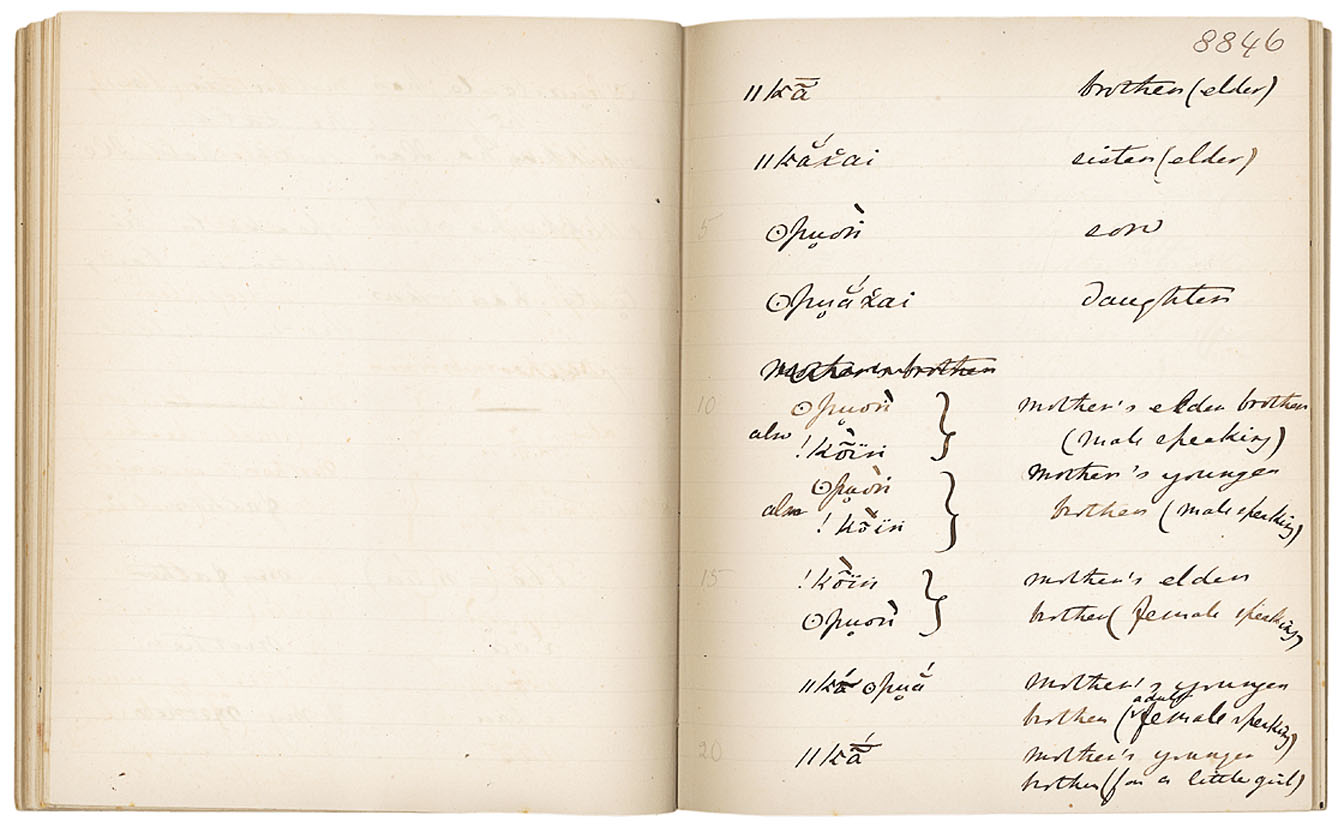 8846
ǁkā̆ brother (elder)
ǁkā́x̆ai sister (elder)
5 ʘpu̥òn̄ son
ʘpu̥ắx̆ai daughter
mother's brother
10 ʘpu̥òn̄ mother's elder brother
also !kò̃ïn (male speaking)
ʘpu̥òn̄ mother's younger
also !kò̃ïn brother (male speaking)
15 !kò̃ïn mother's elder
ʘpu̥òn̄ brother (female speaking)
ǁká̄ ʘpu̥ắ mother's younger
adult
brother (female speaking)
20 ǁká̄ mother's younger
brother (for a little girl)